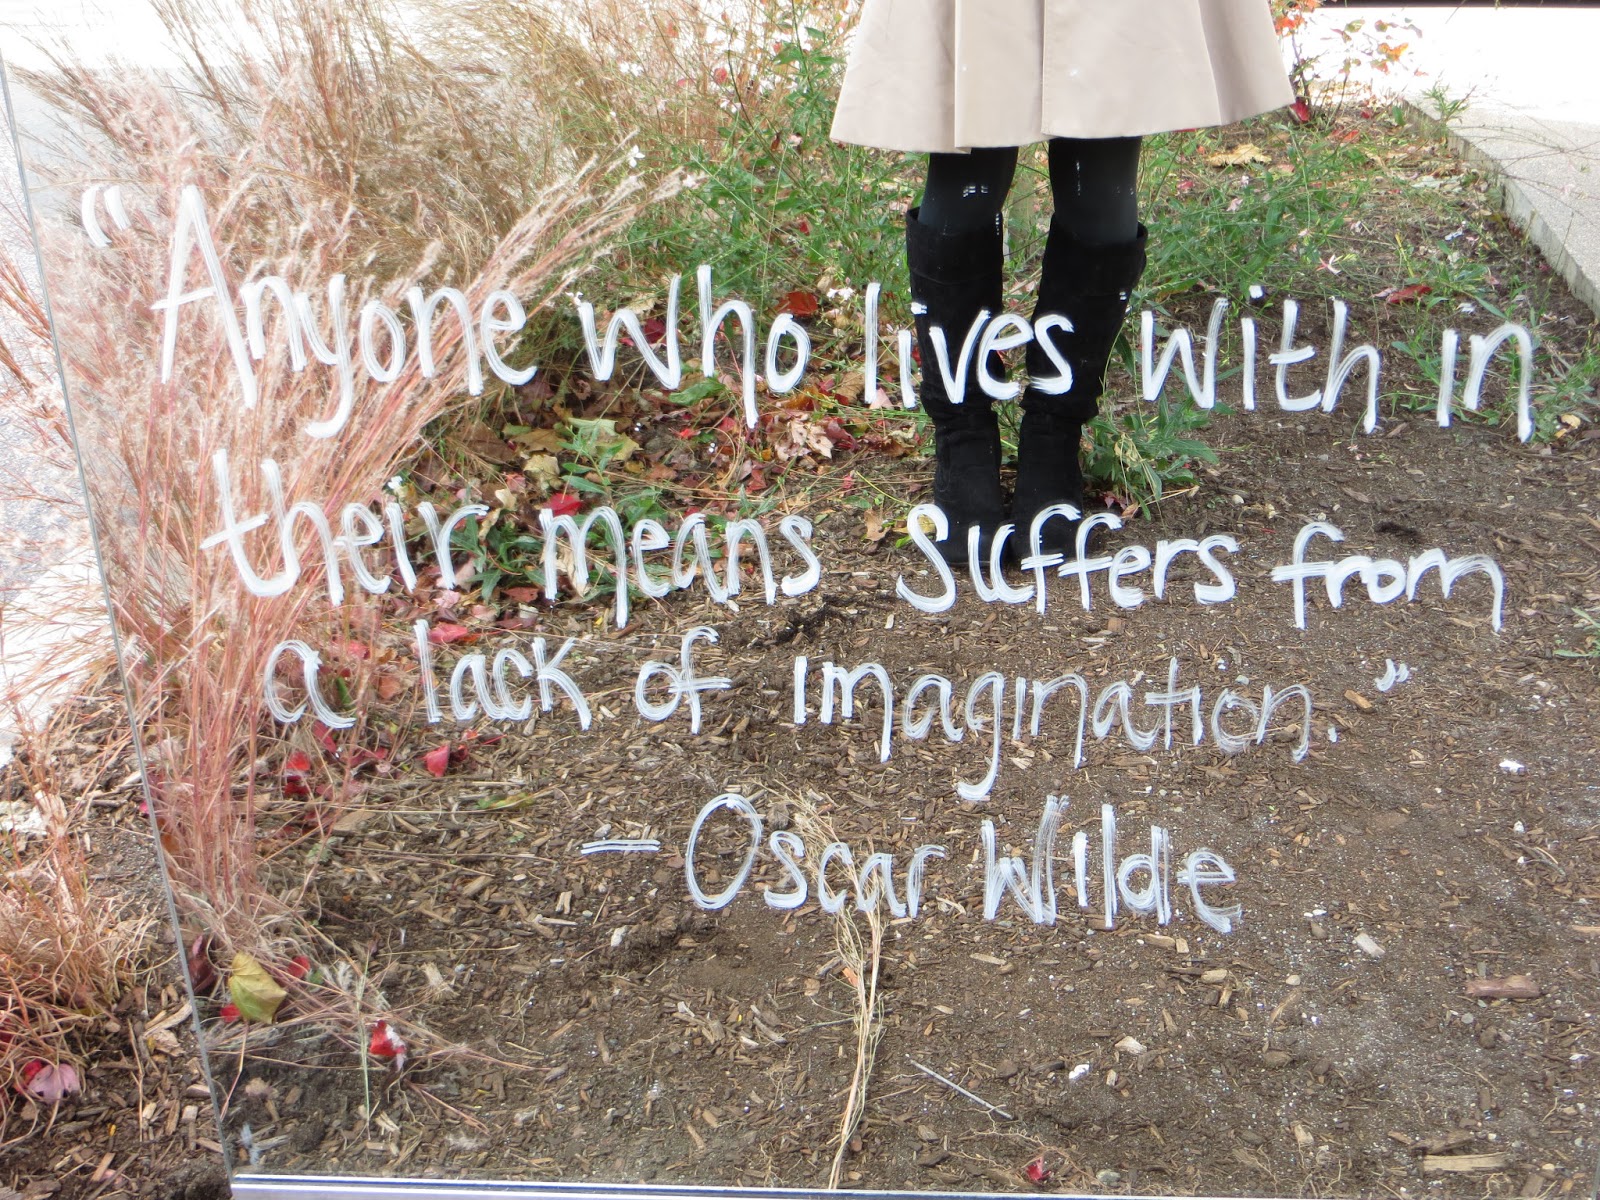 “Anyone who lives with in
their means suffers from
a lack of imagination.”
—Oscar Wilde